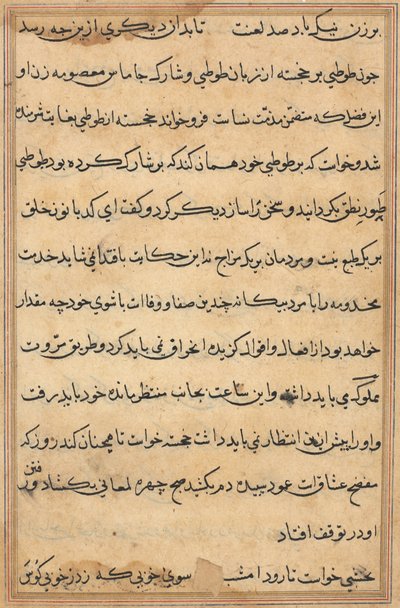 بر زن نیک باد صد لعنت تا بد از دیگری ازین چه رسد
چون طوطی بر خجسته از زبان طوطی و شارک جا ماس معصومه زن او
این فضل که متضمن مذمت نساست فروخواند خجسته از طوطی بغایت شرمنده
شد و خواست که بر طوطی خود همان کند که بر شارک کرده بود طوطی
طیور نطق بگردانید و سخن را ساز دیگر کرد و گفت ای کدبانو نخلق
بر یک طبع نیست و مردمان بر یک مزاج نه این حکایت باقدامی شاید خدمت
مخدومه را با مرد بیگانه چندین صفا و وفاات با شوی خود چه مقدار
خواهد بود از افعال و اقوال گزیده انحراف نمی باید کرد و طریق مروت
مملوک می باید داشت و این ساعت بجانب منتظر مانده خود باید رفت
و او را پیش ازین انتظار نمی باید داشت خجسته خواست تا همچنان کند روز که
مفضح عشاق است عود سپیده دم بکشید صبح چهره لمعانی بکشاد و رفتن
او در توقف افتاد
نخشبی خواست تا رود امشب سوی خوبی که زد ز خوبی کوس